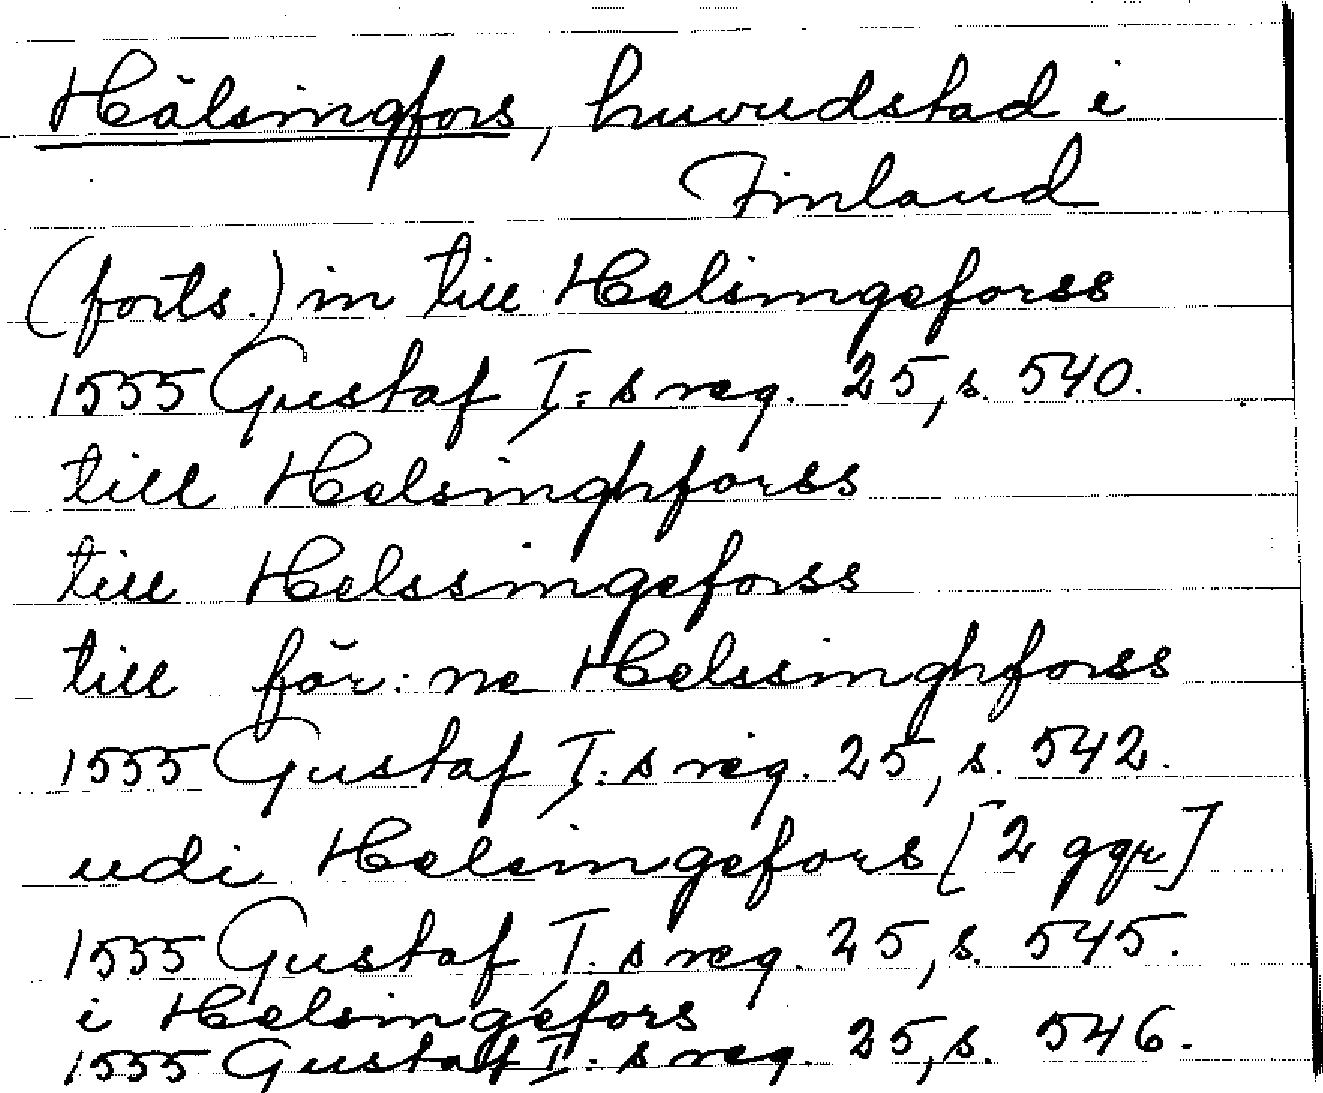 Hälsingfors, huvudstad i
Finland
(forts.) in till Helsingeforss
1555 Gustaf I:s reg. 25, s. 540.
till Helsinghforss
till Helssingeforss
till för:ne Helssinghforss
1555 Gustaf I:s reg. 25, s. 542.
udi Helsingefors [2 ggr]
1555 Gustaf I:s reg. 25, s. 545.
i Helsingefors
1555 Gustaf I:s reg. 25, s. 546.